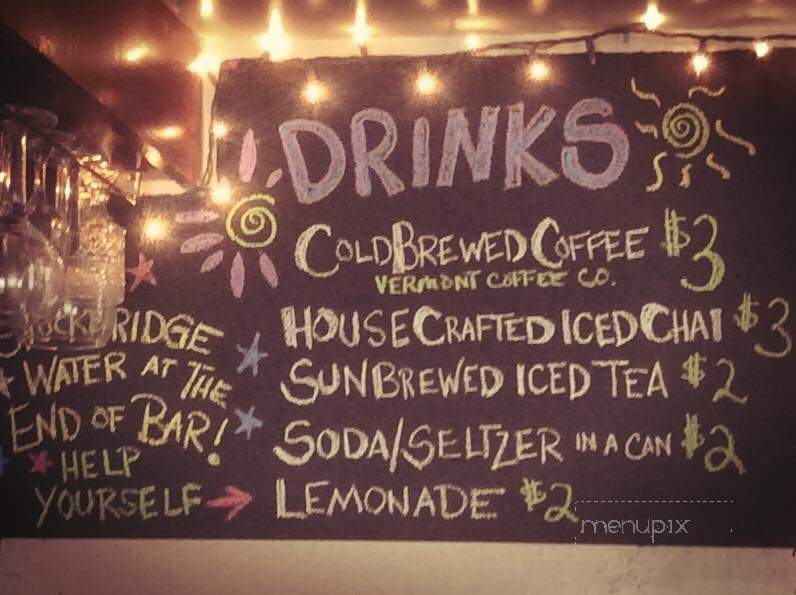 DRINKS
COLD BREWED COFFEE $3
VERMONT COFFEE CO.
HOUSE CRAFTED ICED CHAI $3
SUN BREWED ICED TEA $2
SODA/SELTZER IN A CAN $2
LEMONADE $2
WATER AT THE
END OF BAR!
HELP
YOURSELF
menupix